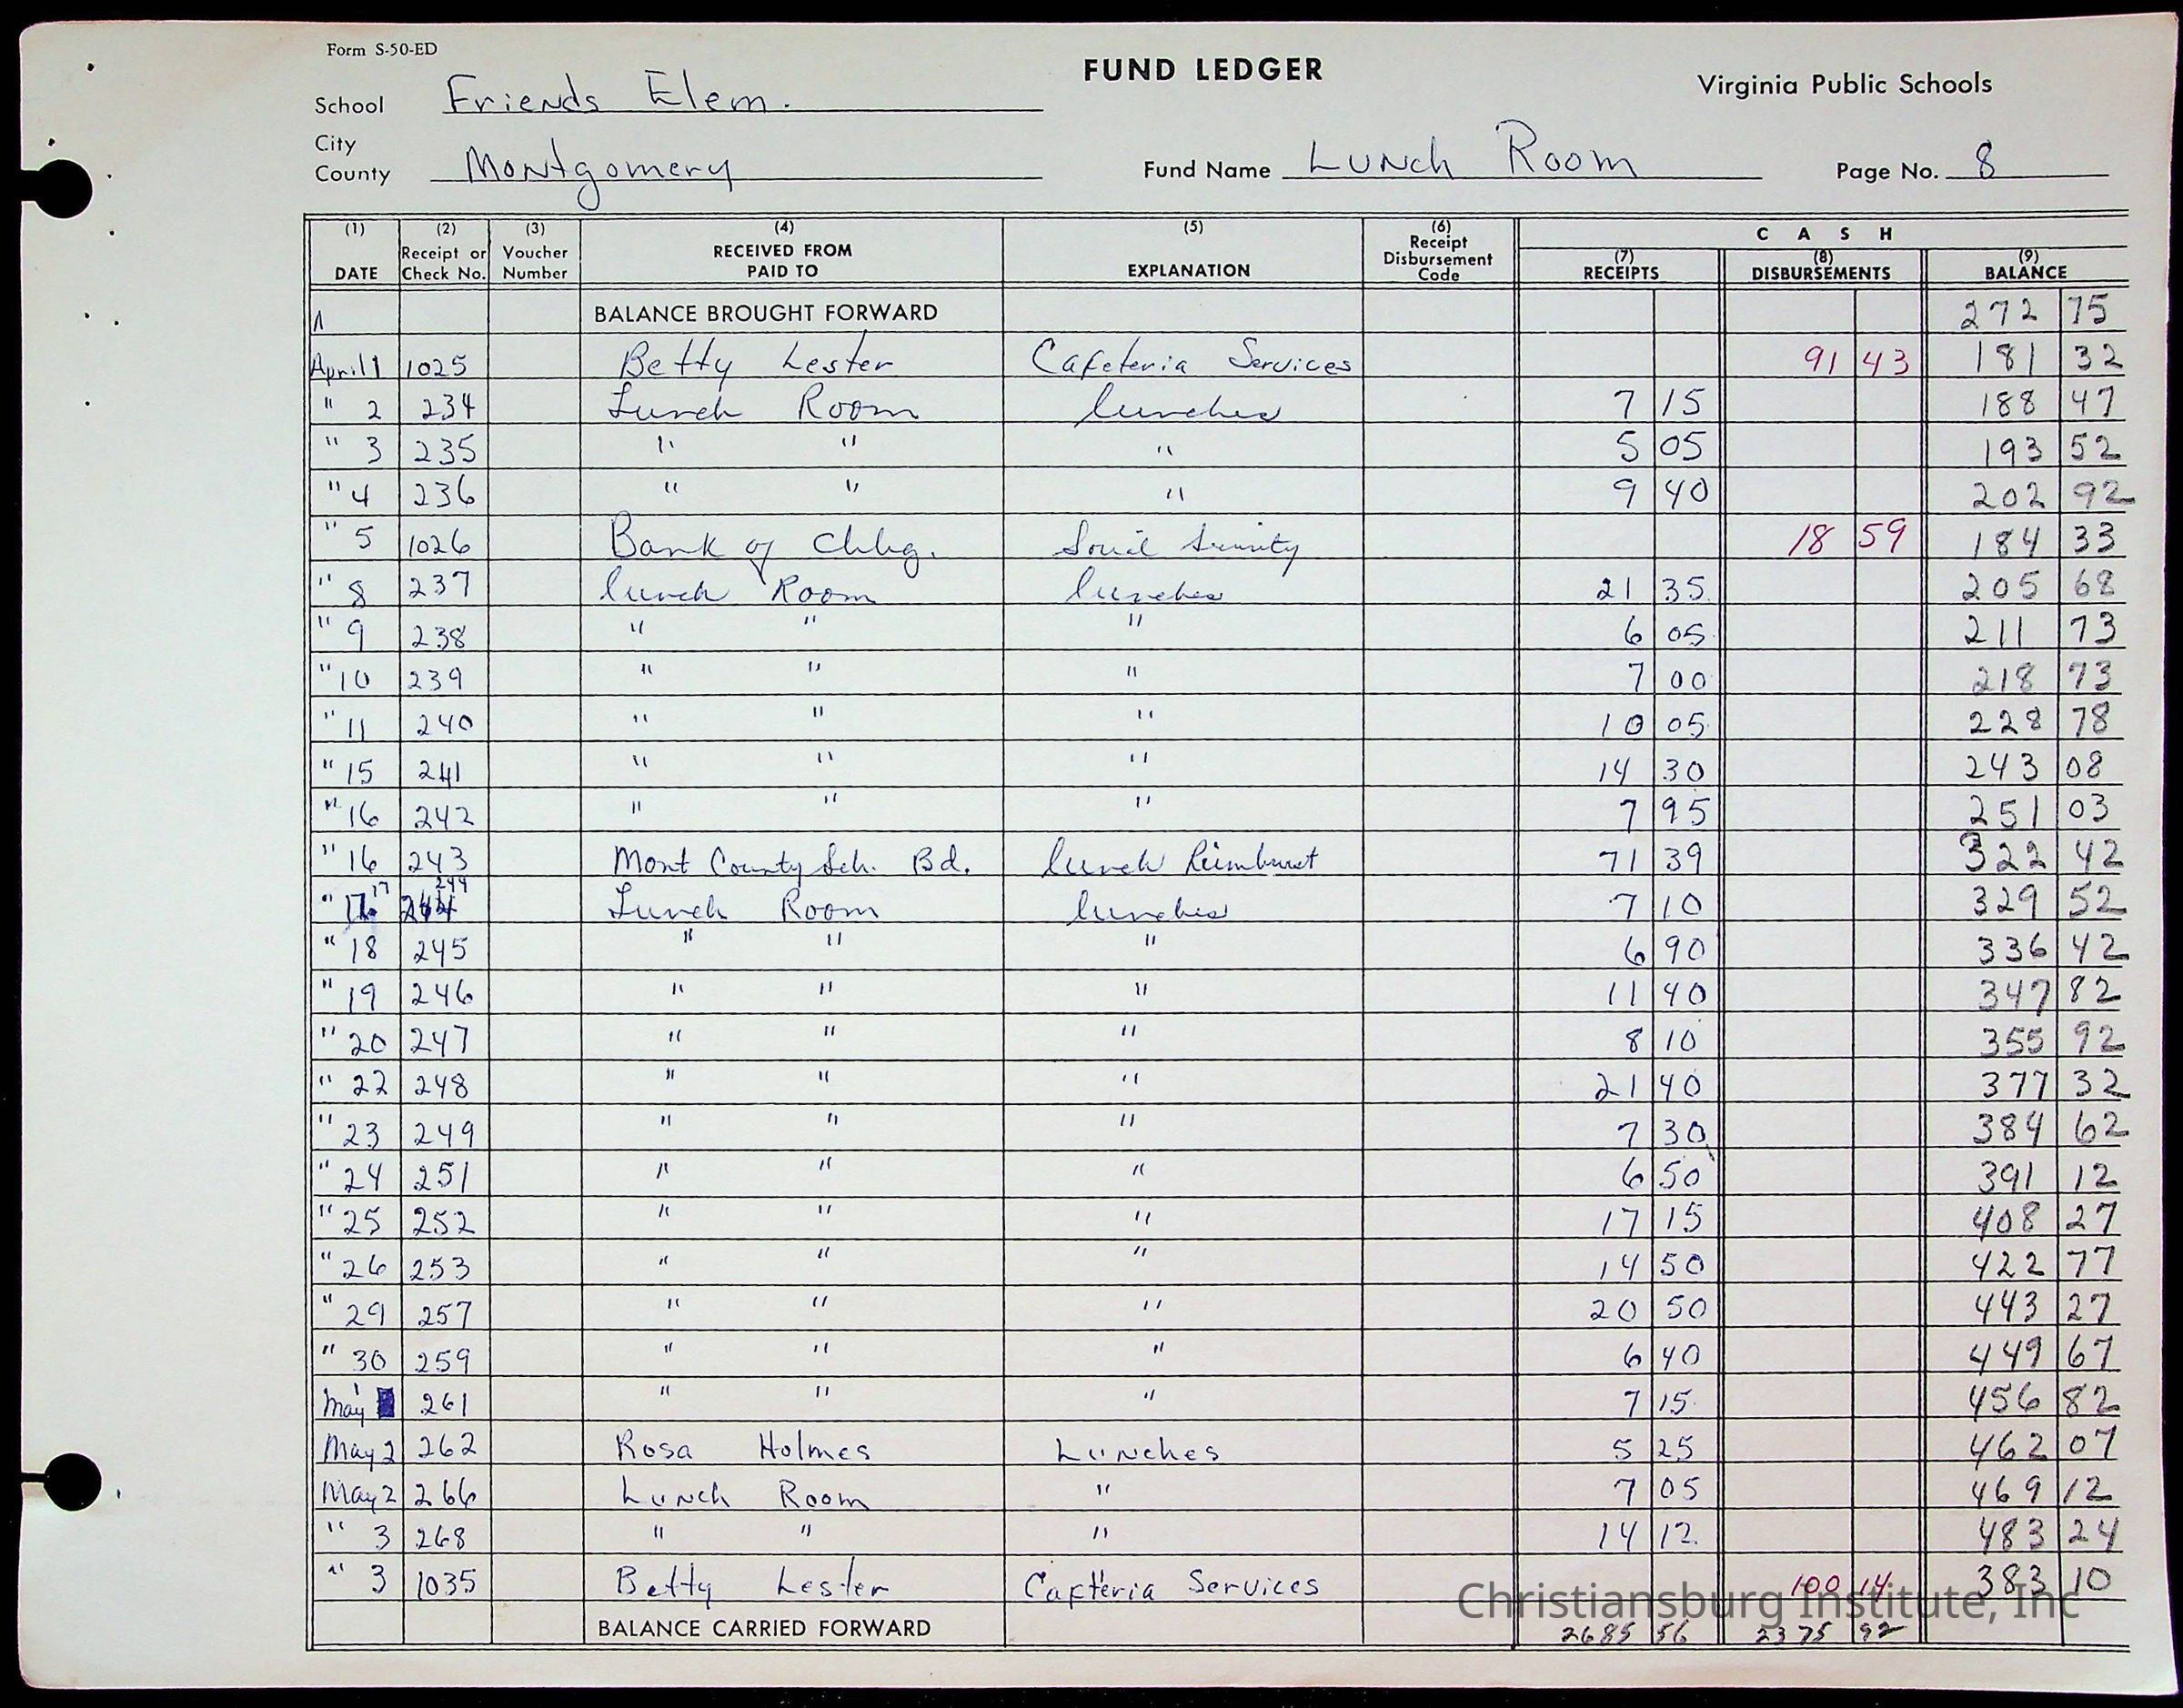 Form S-50-ED
FUND LEDGER
Virginia Public Schools
School Friends Elem.
City
County Montgomery
Fund Name Lunch Room
Page No. 8
(1) (2) (3) (4) (5) (6) C A S H
DATE Receipt or Check No. Voucher Number RECEIVED FROM PAID TO EXPLANATION Receipt Disbursement Code (7) RECEIPTS (8) DISBURSEMENTS (9) BALANCE
BALANCE BROUGHT FORWARD 272 75
April 1 1025 Betty Lester Cafeteria Services 91 43 181 32
" 2 234 Lunch Room lunches 7 15 188 47
" 3 235 " " " 5 05 193 52
" 4 236 " " " 9 40 202 92
" 5 1026 Bank of Chbg. 18 59 184 33
" 8 237 lunch Room lunches 21 35 205 68
" 9 238 " " " 6 05 211 73
" 10 239 " " " 7 00 218 73
" 11 240 " " " 10 05 228 78
" 15 241 " " " 14 30 243 08
" 16 242 " " " 7 95 251 03
" 16 243 Mont County Sch. Bd. lunch 71 39 322 42
" 17 244 Lunch Room lunches 7 10 329 52
" 18 245 " " " 6 90 336 42
" 19 246 " " " 11 40 347 82
" 20 247 " " " 8 10 355 92
" 22 248 " " " 21 40 377 32
" 23 249 " " " 7 30 384 62
" 24 251 " " " 6 50 391 12
" 25 252 " " " 17 15 408 27
" 26 253 " " " 14 50 422 77
" 29 257 " " " 20 50 443 27
" 30 259 " " " 6 40 449 67
May 1 261 " " " 7 15 456 82
May 2 262 Rosa Holmes Lunches 5 25 462 07
May 2 266 Lunch Room " 7 05 469 12
" 3 268 " " " 14 12 483 24
" 3 1035 Betty Lester Cafteria Services 100 14 383 10
Christiansburg Institute, Inc
BALANCE CARRIED FORWARD 2685 56 2375 92